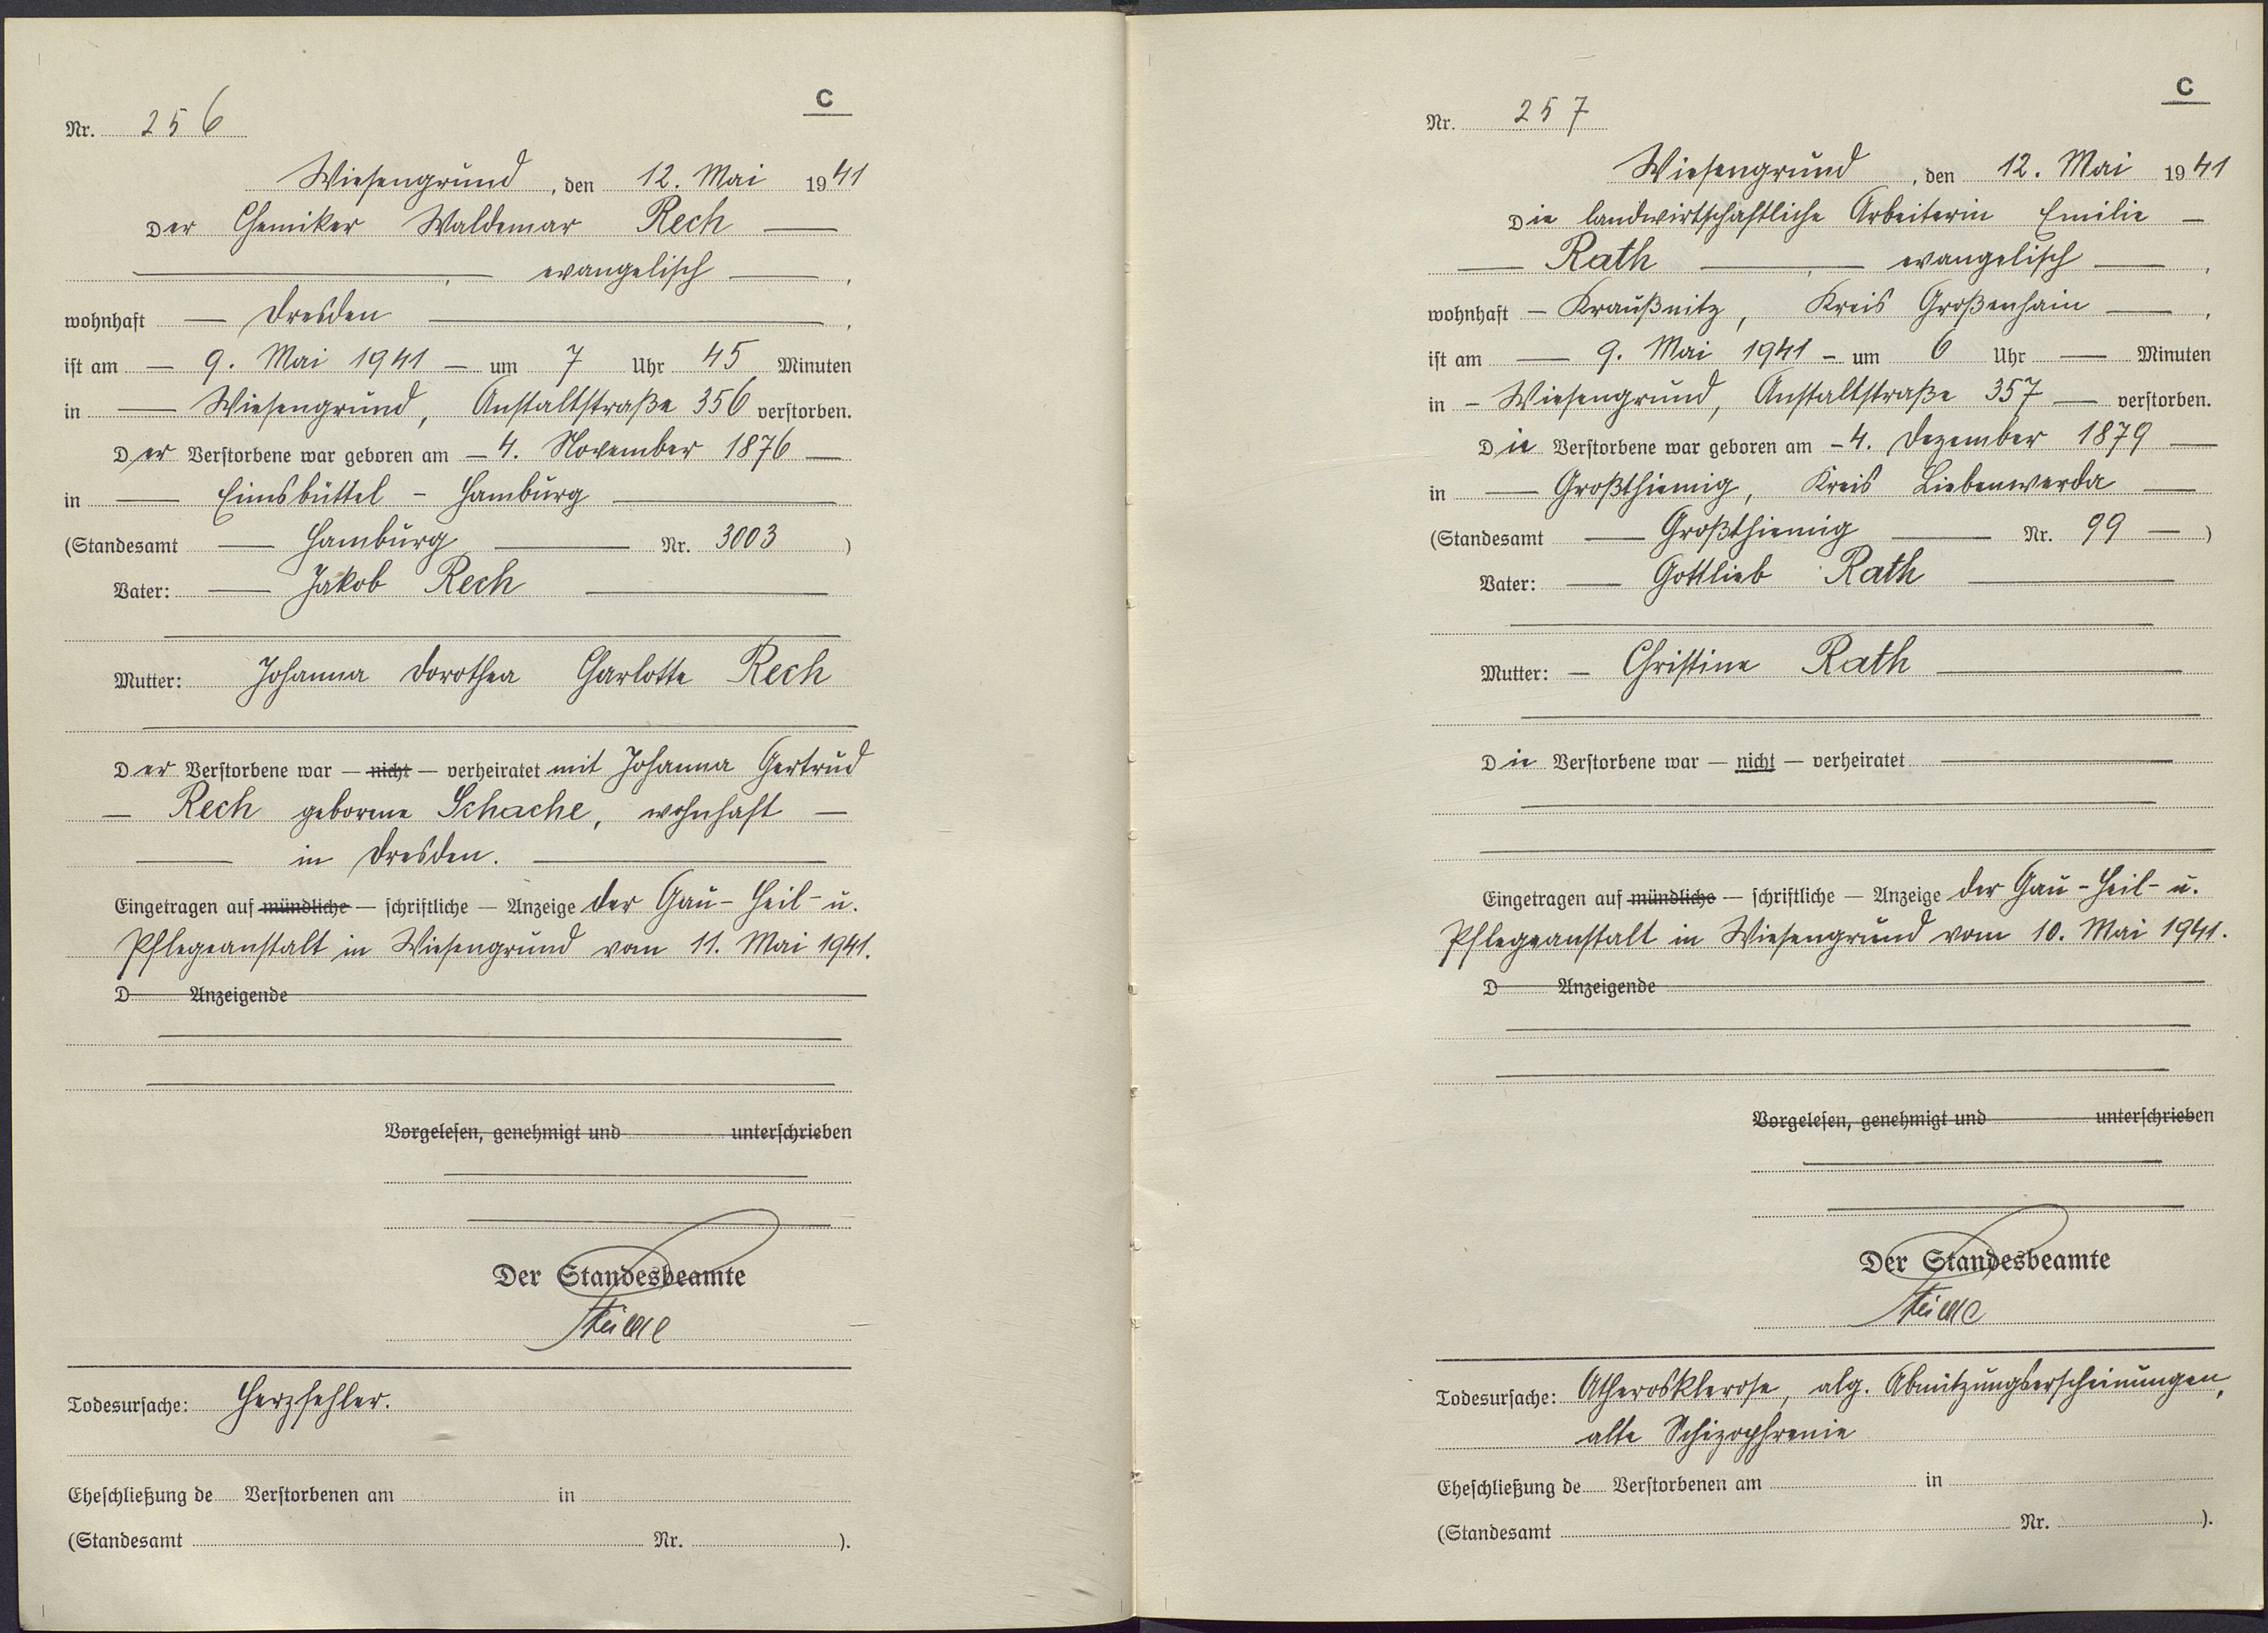 C
Nr. 256
Wiesengrund, den 12. Mai 1941
Der Chemiker Waldemar Rech
, evangelisch ,
wohnhaft Dresden ,
ist am 9. Mai 1941 um 7 Uhr 45 Minuten
in Wiesengrund, Anstaltstraße 356 verstorben.
Der Verstorbene war geboren am 4. November 1876
in Eimsbüttel - Hamburg
(Standesamt Hamburg Nr. 3003 )
Vater: Jakob Rech
Mutter: Johanna Dorothea Charlotte Rech
Der Verstorbene war — nicht — verheiratet mit Johanna Gertrud
Rech geborene Schache, wohnhaft
in Dresden.
Eingetragen auf mündliche — schriftliche — Anzeige der Gau- Heil- u.
Pflegeanstalt in Wiesengrund vom 11. Mai 1941.
D Anzeigende
Vorgelesen, genehmigt und unterschrieben
Der Standesbeamte
Todesursache: Herzfehler.
Eheschließung de Verstorbenen am in
(Standesamt Nr. ).
C
Nr. 257
Wiesengrund, den 12. Mai 1941
Die landwirtschaftliche Arbeiterin Emilie
Rath , evangelisch ,
wohnhaft Kraußnitz, Kreis Großenhain ,
ist am 9. Mai 1941 um 6 Uhr — Minuten
in Wiesengrund, Anstaltstraße 357 verstorben.
Die Verstorbene war geboren am 4. Dezember 1879
in Großthiemig, Kreis Liebenwerda
(Standesamt Großthiemig Nr. 99 )
Vater: Gottlieb Rath
Mutter: Christine Rath
Die Verstorbene war — nicht — verheiratet
Eingetragen auf mündliche — schriftliche — Anzeige der Gau- Heil- u.
Pflegeanstalt in Wiesengrund vom 10. Mai 1941.
D Anzeigende
Vorgelesen, genehmigt und unterschrieben
Der Standesbeamte
Todesursache: Atherosklerose, alg. Abnützungserscheinungen,
alte Schizophrenie
Eheschließung de Verstorbenen am in
(Standesamt Nr. ).